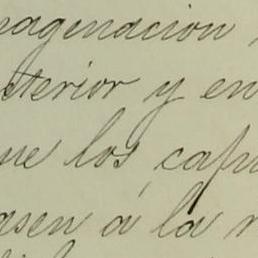 maginacion
terior y en
ue los cap
asen á la